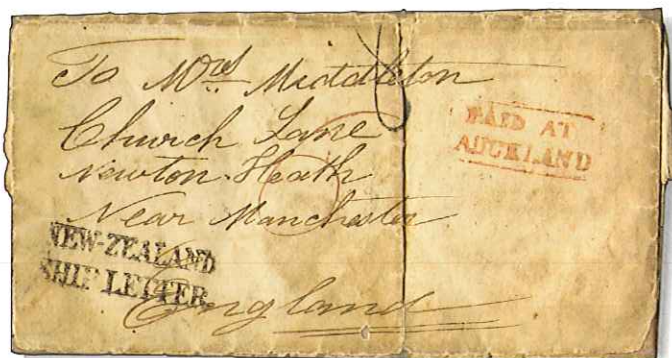 To Mrs Middleton
Church Lane
Newton Heath
Near Manchester
England
PAID AT
AUCKLAND
NEW-ZEALAND
SHIP LETTER